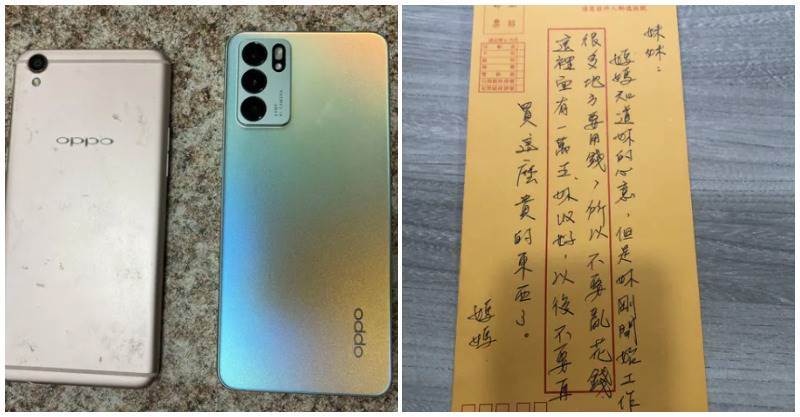 oppo
oppo
妹妹:
媽媽知道妹的心意,但是妹剛開始工作
很多地方要用錢,所以不要亂花錢
這裡面有一萬五,妹收好,以後不要再
買這麼貴的東西了。
媽媽